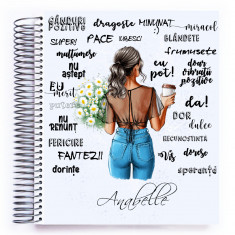 GÂNDURI POZITIVE
dragoste MINUNAT :)
miracol
SUPER! PACE IUBESC!
BLÂNDEȚE
mulțumesc
frumusețe
nu aștept
eu pot!
doar vibrații pozitive
EU merit
putere
da!
nu RENUNT
DOR
dulce
FERICIRE
RECUNOSTINTA
FANTEZII
Vis doresc
dorințe
speranță
Anabelle